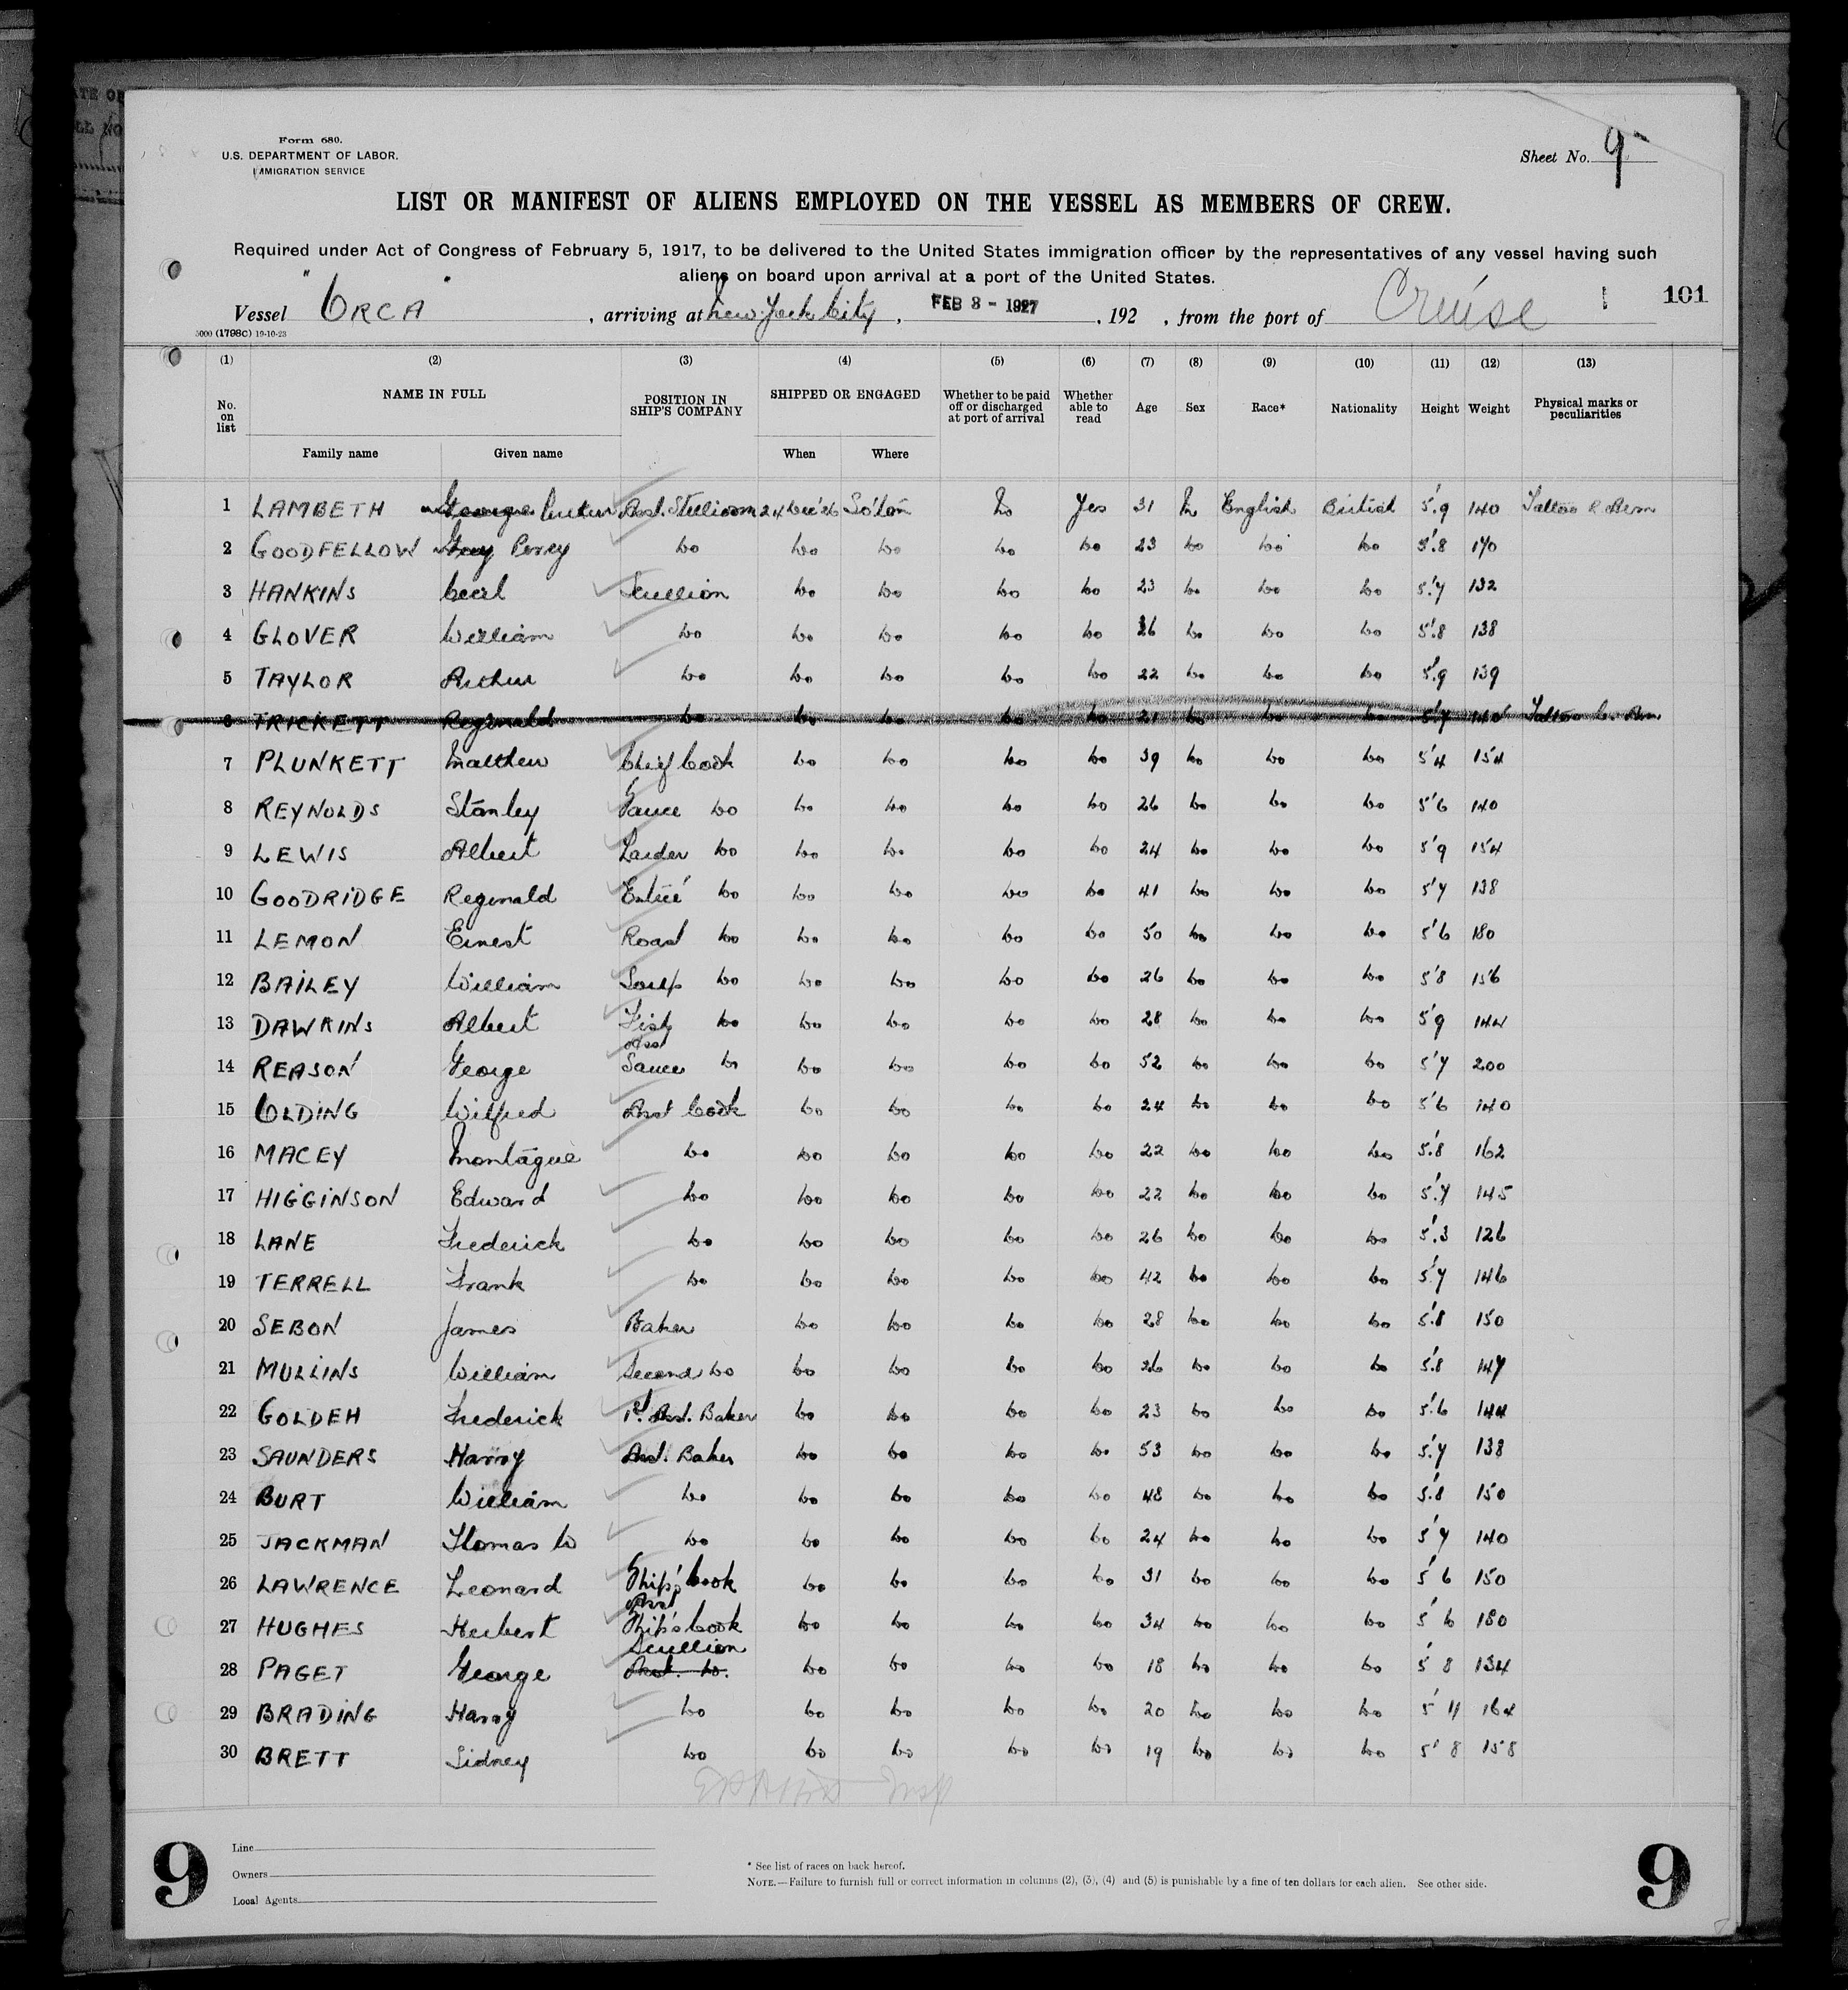 Form 680.
U.S. DEPARTMENT OF LABOR.
IMMIGRATION SERVICE
Sheet No. 9
LIST OR MANIFEST OF ALIENS EMPLOYED ON THE VESSEL AS MEMBERS OF CREW.
Required under Act of Congress of February 5, 1917, to be delivered to the United States immigration officer by the representatives of any vessel having such
aliens on board upon arrival at a port of the United States.
Vessel "ORCA", arriving at New York City, FEB 3 - 1927, 192 , from the port of Cruise 101
5000 (1798C) 10-10-23
(1) (2) (3) (4) (5) (6) (7) (8) (9) (10) (11) (12) (13)
No. on list NAME IN FULL POSITION IN SHIP'S COMPANY SHIPPED OR ENGAGED Whether to be paid off or discharged at port of arrival Whether able to read Age Sex Race* Nationality Height Weight Physical marks or peculiarities
Family name Given name When Where
1 LAMBETH George Asst. 24 Dec '26 So'ton No Yes 31 M English British 5'.9 140 Tattoo R Arm
2 GOODFELLOW Percy Do Do Do Do Do 23 Do Do Do 5'.8 170
3 HANKINS Cecil Scullion Do Do Do Do 23 Do Do Do 5'.7 132
4 GLOVER William Do Do Do Do Do 26 Do Do Do 5'.8 138
5 TAYLOR Arthur Do Do Do Do Do 22 Do Do Do 5'.9 139
6 TRICKETT Reginald Do Do Do Do Do 21 Do Do Do 5'.7 140 Tattoo L. Arm
7 PLUNKETT Matthew Chief Cook Do Do Do Do 39 Do Do Do 5'4 154
8 REYNOLDS Stanley Sauce Do Do Do Do Do 26 Do Do Do 5'6 140
9 LEWIS Albert Larder Do Do Do Do Do 24 Do Do Do 5'9 154
10 GOODRIDGE Reginald Entreé Do Do Do Do Do 41 Do Do Do 5'7 138
11 LEMON Ernest Roast Do Do Do Do Do 50 Do Do Do 5'6 180
12 BAILEY William Soup Do Do Do Do Do 26 Do Do Do 5'8 156
13 DAWKINS Albert Fish Do Do Do Do Do 28 Do Do Do 5'9 144
14 REASON George Asst Sauce Do Do Do Do Do 52 Do Do Do 5'7 200
15 OLDING Wilfred Asst Cook Do Do Do Do 24 Do Do Do 5'6 140
16 MACEY Montague Do Do Do Do Do 22 Do Do Do 5'.8 162
17 HIGGINSON Edward Do Do Do Do Do 22 Do Do Do 5'.7 145
18 LANE Frederick Do Do Do Do Do 26 Do Do Do 5'.3 126
19 TERRELL Frank Do Do Do Do Do 42 Do Do Do 5'.7 146
20 SEBON James Baker Do Do Do Do 28 Do Do Do 5'.8 150
21 MULLINS William Second Do Do Do Do Do 26 Do Do Do 5'.8 147
22 GOLDEH Frederick 1st Asst. Baker Do Do Do Do 23 Do Do Do 5'.6 144
23 SAUNDERS Harry Asst. Baker Do Do Do Do 53 Do Do Do 5'.7 138
24 BURT William Do Do Do Do Do 48 Do Do Do 5'.8 150
25 JACKMAN Thomas W Do Do Do Do Do 24 Do Do Do 5'7 140
26 LAWRENCE Leonard Ship's Cook Do Do Do Do 31 Do Do Do 5'6 150
27 HUGHES Herbert Asst Ship's Cook Do Do Do Do 34 Do Do Do 5'6 180
28 PAGET George Scullion Asst. Do. Do Do Do Do 18 Do Do Do 5'8 134
29 BRADING Harry Do Do Do Do Do 20 Do Do Do 5'11 164
30 BRETT Sidney Do Do Do Do Do 19 Do Do Do 5'8 158
9 Line
Owners
Local Agents
* See list of races on back hereof.
NOTE.—Failure to furnish full or correct information in columns (2), (3), (4) and (5) is punishable by a fine of ten dollars for each alien. See other side.
9